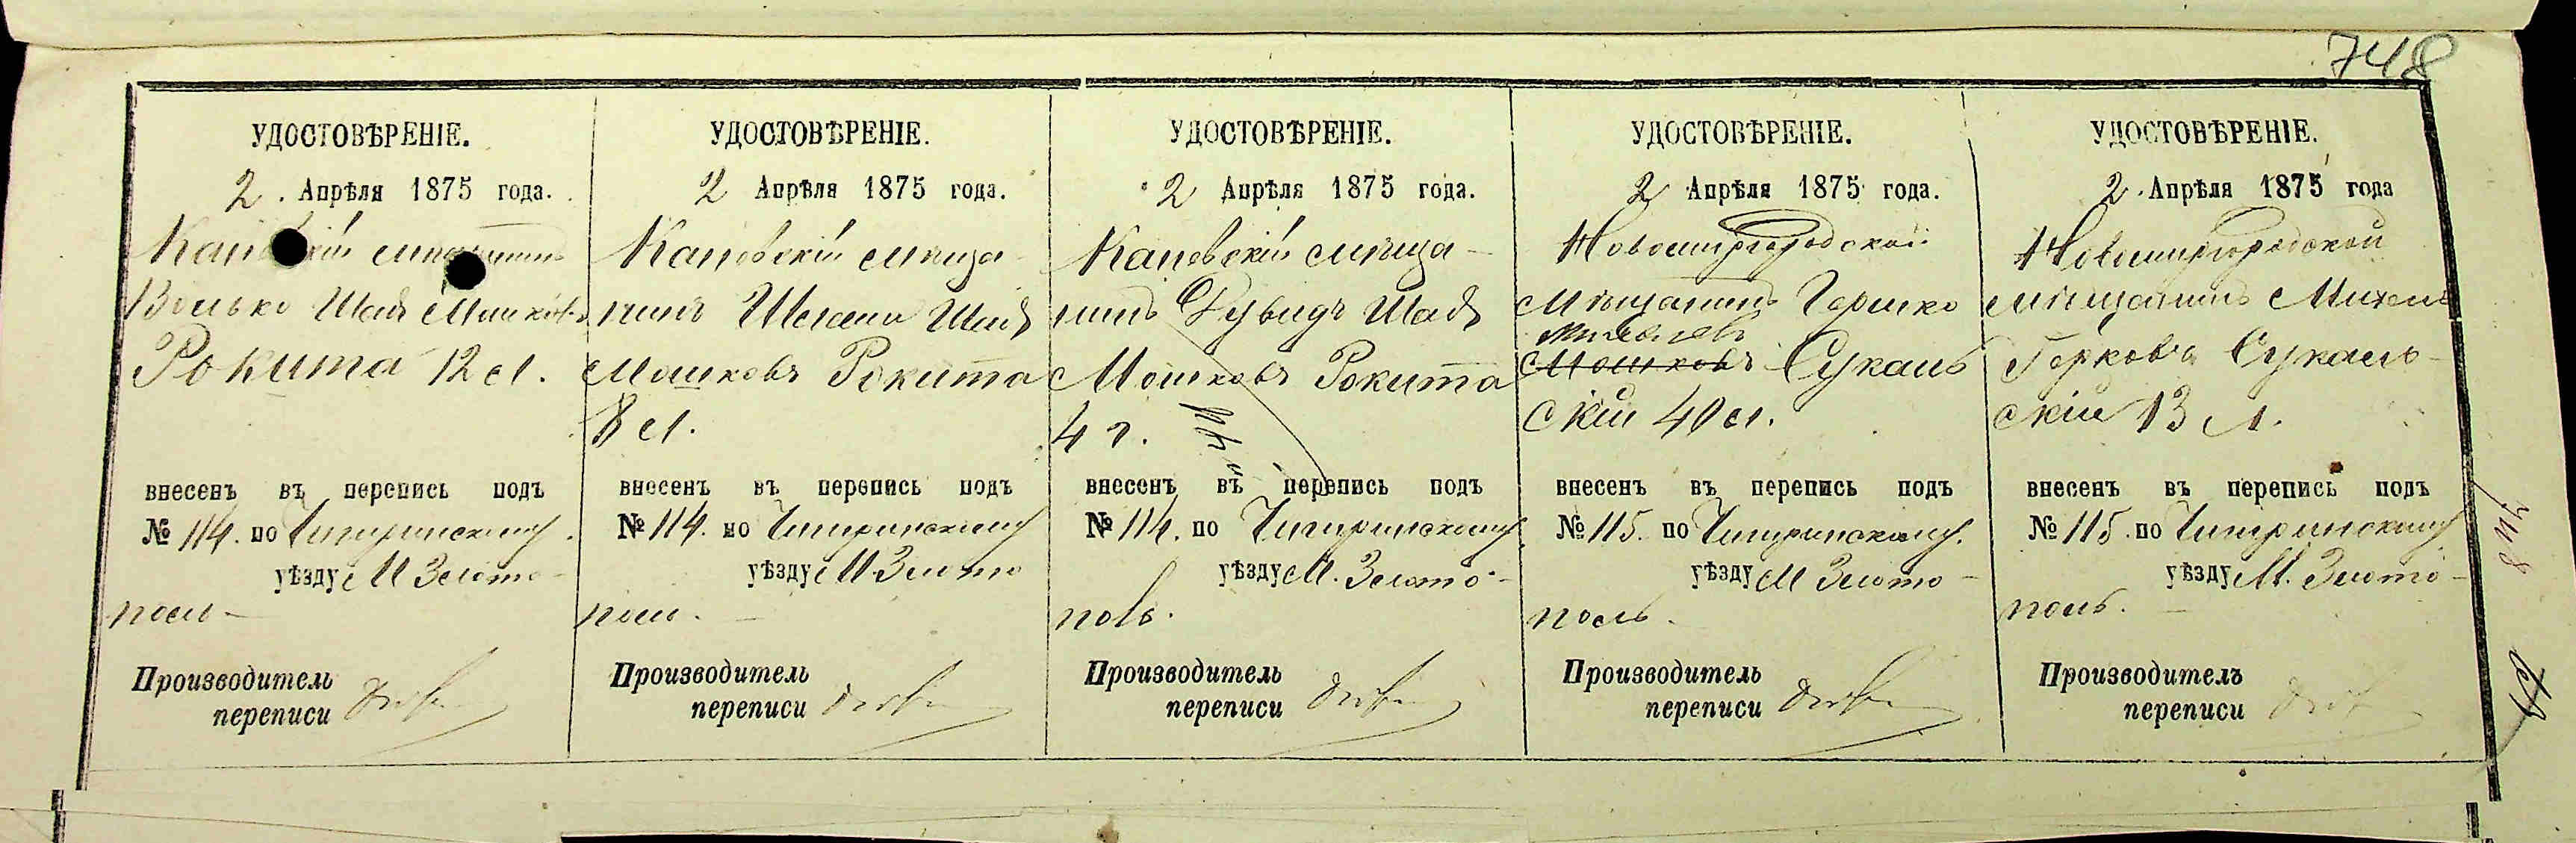 748
УДОСТОВѢРЕНІЕ.
2. Апрѣля 1875 года.
Кан кій мѣщанинъ
Волько Шая Мошковъ
Рокита 12 л.
внесенъ въ перепись подъ
№ 114. по Чигиринскому
уѣзду М Злото-
поль-
Производитель
переписи
УДОСТОВѢРЕНІЕ.
2 Апрѣля 1875 года.
Каневскій мѣща-
нинъ Шая
Мошковъ Рокита
8 л.
внесенъ въ перепись подъ
№ 114. по Чигиринскому
уѣзду М. Злото
поль. -
Производитель
переписи
УДОСТОВѢРЕНІЕ.
2 Апрѣля 1875 года.
Каневскій мѣща-
нинъ Дувидъ Шая
Мошковъ Рокита
4 г.
внесенъ въ перепись подъ
№ 114. по Чигиринскому
уѣзду М. Злото-
поль.
Производитель
переписи
УДОСТОВѢРЕНІЕ.
2 Апрѣля 1875 года.
Новомиргородской
Мѣщанинъ Гершко
Мошковъ Сукаль
скій 40 л.
внесенъ въ перепись подъ
№ 115. по Чигиринскому.
уѣзду М Злото-
поль.
Производитель
переписи
УДОСТОВѢРЕНІЕ.
2. Апрѣля 1875 года
Новомиргородской
мѣщанинъ Михель
Герковъ Сукаль-
скій 13 л.
внесенъ въ перепись подъ
№ 115. по Чигиринскому
уѣзду М. Злото-
поль. -
Производитель
переписи